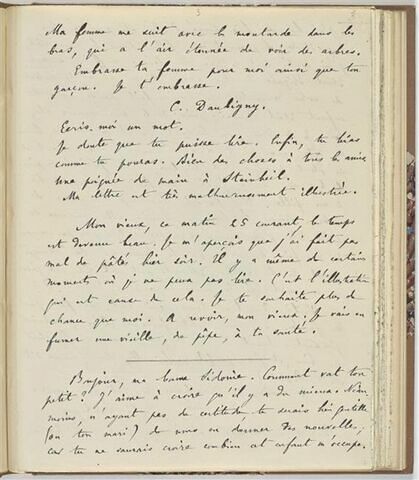 Ma femme me suit avec la moutarde dans les
bras, qui a l'air étonnée de voir des arbres.
Embrasse ta femme pour moi ainsi que ton
garçon. Je t'embrasse.
C. Daubigny.
Ecris-moi un mot.
Je doute que tu puisse lire. Enfin, tu liras
comme tu pouras. Bien des choses à tous les amis
Une poignée de main à Steinheil.
Ma lettre est très malheureusement illustrée.
Mon vieux, ce matin 25 courant, le temps
est devenu beau. Je m'aperçois que j'ai fait pas
mal de pâté hier soir. Il y a même de certains
moments où je ne peux pas lire. C'est l'illustration
qui est cause de cela. Je te souhaite plus de
chance que moi. A revoir, mon vieux. Je vais en
fumer une vieille, de pipe, à ta santé.
Bonjour, ma bonne Sidonie. Comment va ton
petit? J'aime à croire qu'il y a du mieux. Néan
moins, n'ayant pas de certitude, tu serais bien gentille
(ou ton mari) de nous en donner des nouvelles,
car tu ne saurais croire combien cet enfant m'occupe.